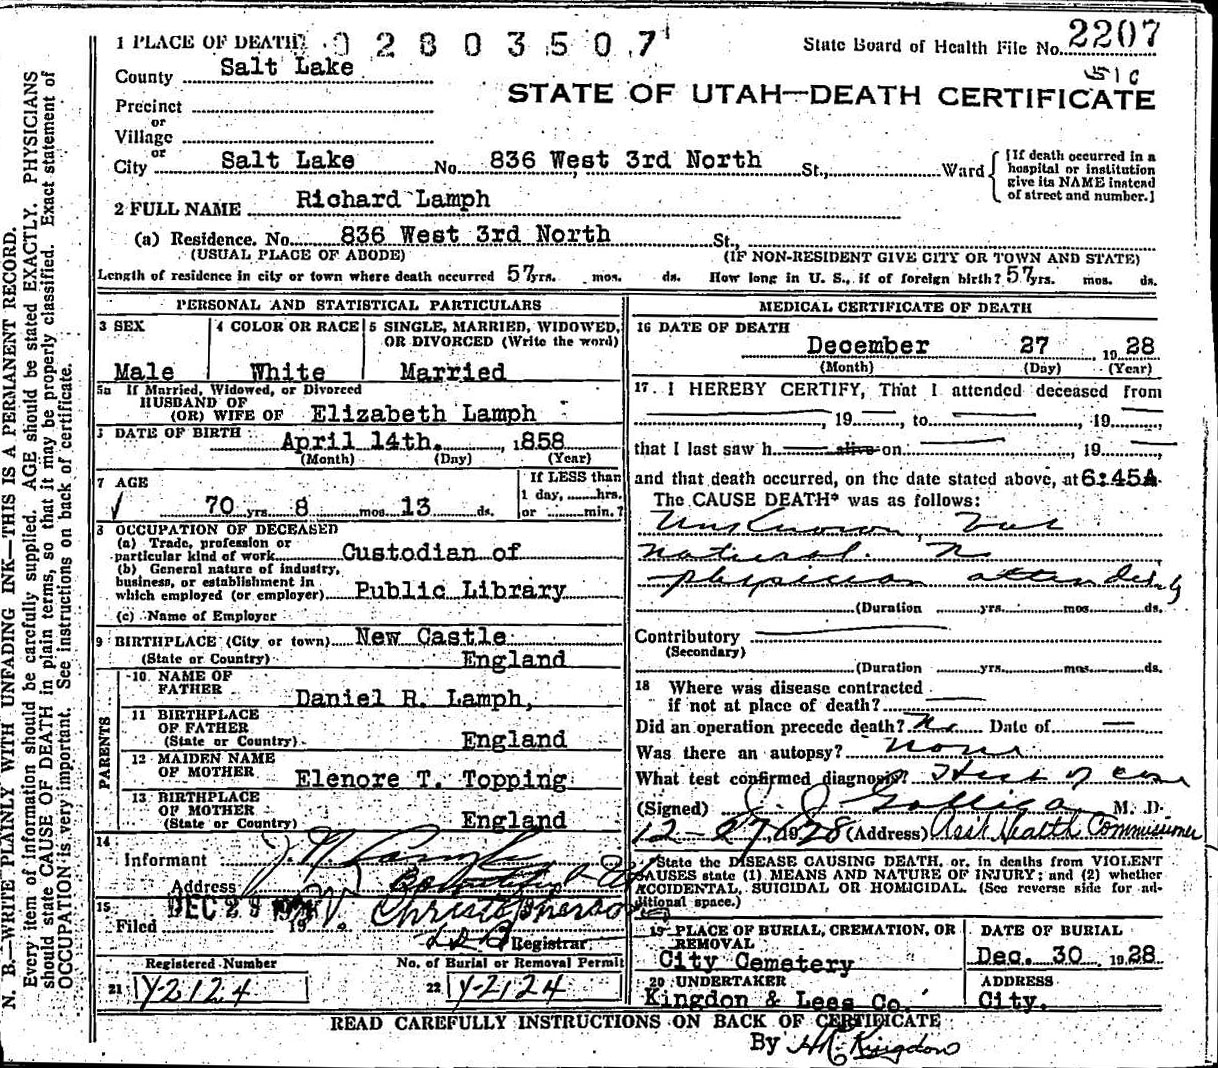 1 PLACE OF DEATH 02803507 State Board of Health File No. 2207
County Salt Lake
STATE OF UTAH—DEATH CERTIFICATE
Precinct
or
Village
or
City Salt Lake No. 836 West 3rd North St., Ward
[If death occurred in a
hospital or institution
give its NAME instead
of street and number.]
2 FULL NAME Richard Lamph
(a) Residence. No. 836 West 3rd North St.,
(USUAL PLACE OF ABODE) (IF NON-RESIDENT GIVE CITY OR TOWN AND STATE)
Length of residence in city or town where death occurred 57 yrs. mos. ds. How long in U. S., if of foreign birth? 57 yrs. mos. ds.
PERSONAL AND STATISTICAL PARTICULARS
3 SEX
Male
4 COLOR OR RACE
White
5 SINGLE, MARRIED, WIDOWED,
OR DIVORCED (Write the word)
Married
5a If Married, Widowed, or Divorced
HUSBAND OF
(OR) WIFE OF Elizabeth Lamph
DATE OF BIRTH April 14th. 1858
(Month) (Day) (Year)
7 AGE
70 yrs. 8 mos. 13 ds.
If LESS than
1 day, hrs.
or min.?
8 OCCUPATION OF DECEASED
(a) Trade, profession or
particular kind of work Custodian of
(b) General nature of industry,
business, or establishment in
which employed (or employer) Public Library
(c) Name of Employer
9 BIRTHPLACE (City or town) New Castle
(State or Country) England
PARENTS
10 NAME OF
FATHER Daniel R. Lamph,
11 BIRTHPLACE
OF FATHER
(State or Country) England
12 MAIDEN NAME
OF MOTHER Elenore T. Topping
13 BIRTHPLACE
OF MOTHER
(State or Country) England
14
Informant
Address
15
Filed DEC 29 19 Registrar
Registered Number
21 Y-2124
No. of Burial or Removal Permit
22 Y-2124
MEDICAL CERTIFICATE OF DEATH
16 DATE OF DEATH
December 27 1928
(Month) (Day) (Year)
17 I HEREBY CERTIFY, That I attended deceased from
, 19 , to , 19 ,
that I last saw h alive on , 19 ,
and that death occurred, on the date stated above, at 6:45A.
The CAUSE DEATH* was as follows:
Unknown, but
natural. No
physician attending
(Duration yrs. mos. ds.
Contributory
(Secondary)
(Duration yrs. mos. ds.
18 Where was disease contracted
if not at place of death?
Did an operation precede death? No Date of
Was there an autopsy? None
What test confirmed diagnosis? Hist of case
(Signed) M. D.
12-27 1928 (Address) Asst Health Commissioner
*State the DISEASE CAUSING DEATH, or, in deaths from VIOLENT
CAUSES state (1) MEANS AND NATURE OF INJURY; and (2) whether
ACCIDENTAL, SUICIDAL OR HOMICIDAL. (See reverse side for ad-
ditional space.)
19 PLACE OF BURIAL, CREMATION, OR
REMOVAL
City Cemetery
DATE OF BURIAL
Dec. 30 1928
20 UNDERTAKER
Kingdon & Lees Co.
ADDRESS
City.
READ CAREFULLY INSTRUCTIONS ON BACK OF CERTIFICATE
By H R Kingdon
N. B.—WRITE PLAINLY WITH UNFADING INK—THIS IS A PERMANENT RECORD.
Every item of information should be carefully supplied. AGE should be stated EXACTLY. PHYSICIANS
should state CAUSE OF DEATH in plain terms, so that it may be properly classified. Exact statement of
OCCUPATION is very important. See instructions on back of certificate.